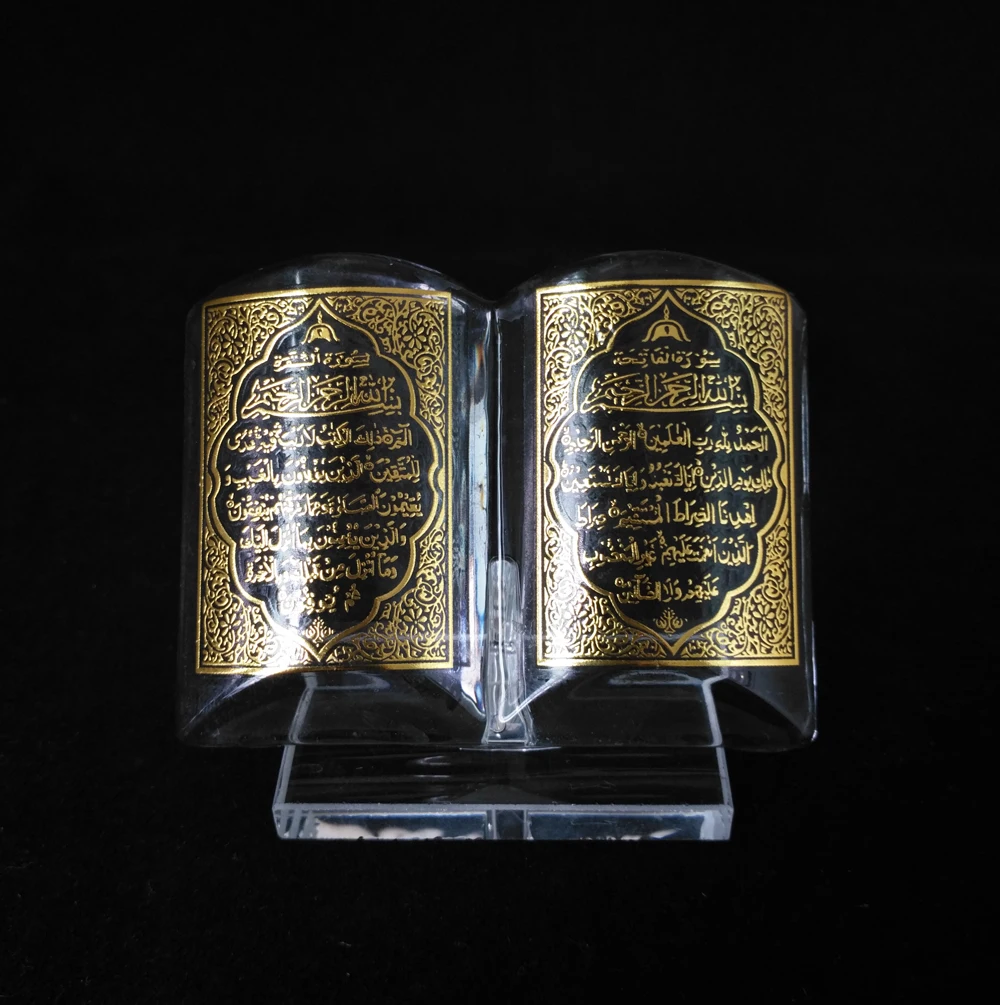 سورة الفاتحة
بسم الله الرحمن الرحيم
الحمد لله رب العلمين الرحمن الرحيم
ملك يوم الدين إياك نعبد وإياك نستعين
اهدنا الصراط المستقيم صراط
الذين انعمت عليهم غير المغضوب
عليهم ولا الضالين
سورة البقرة
بسم الله الرحمن الرحيم
الم ذلك الكتب لا ريب فيه هدى
للمتقين الذين يؤمنون بالغيب و
يقيمون الصلوة ومما رزقنهم ينفقون
والذين يؤمنون بما انزل اليك
وما انزل من قبلك
هم يوقنون